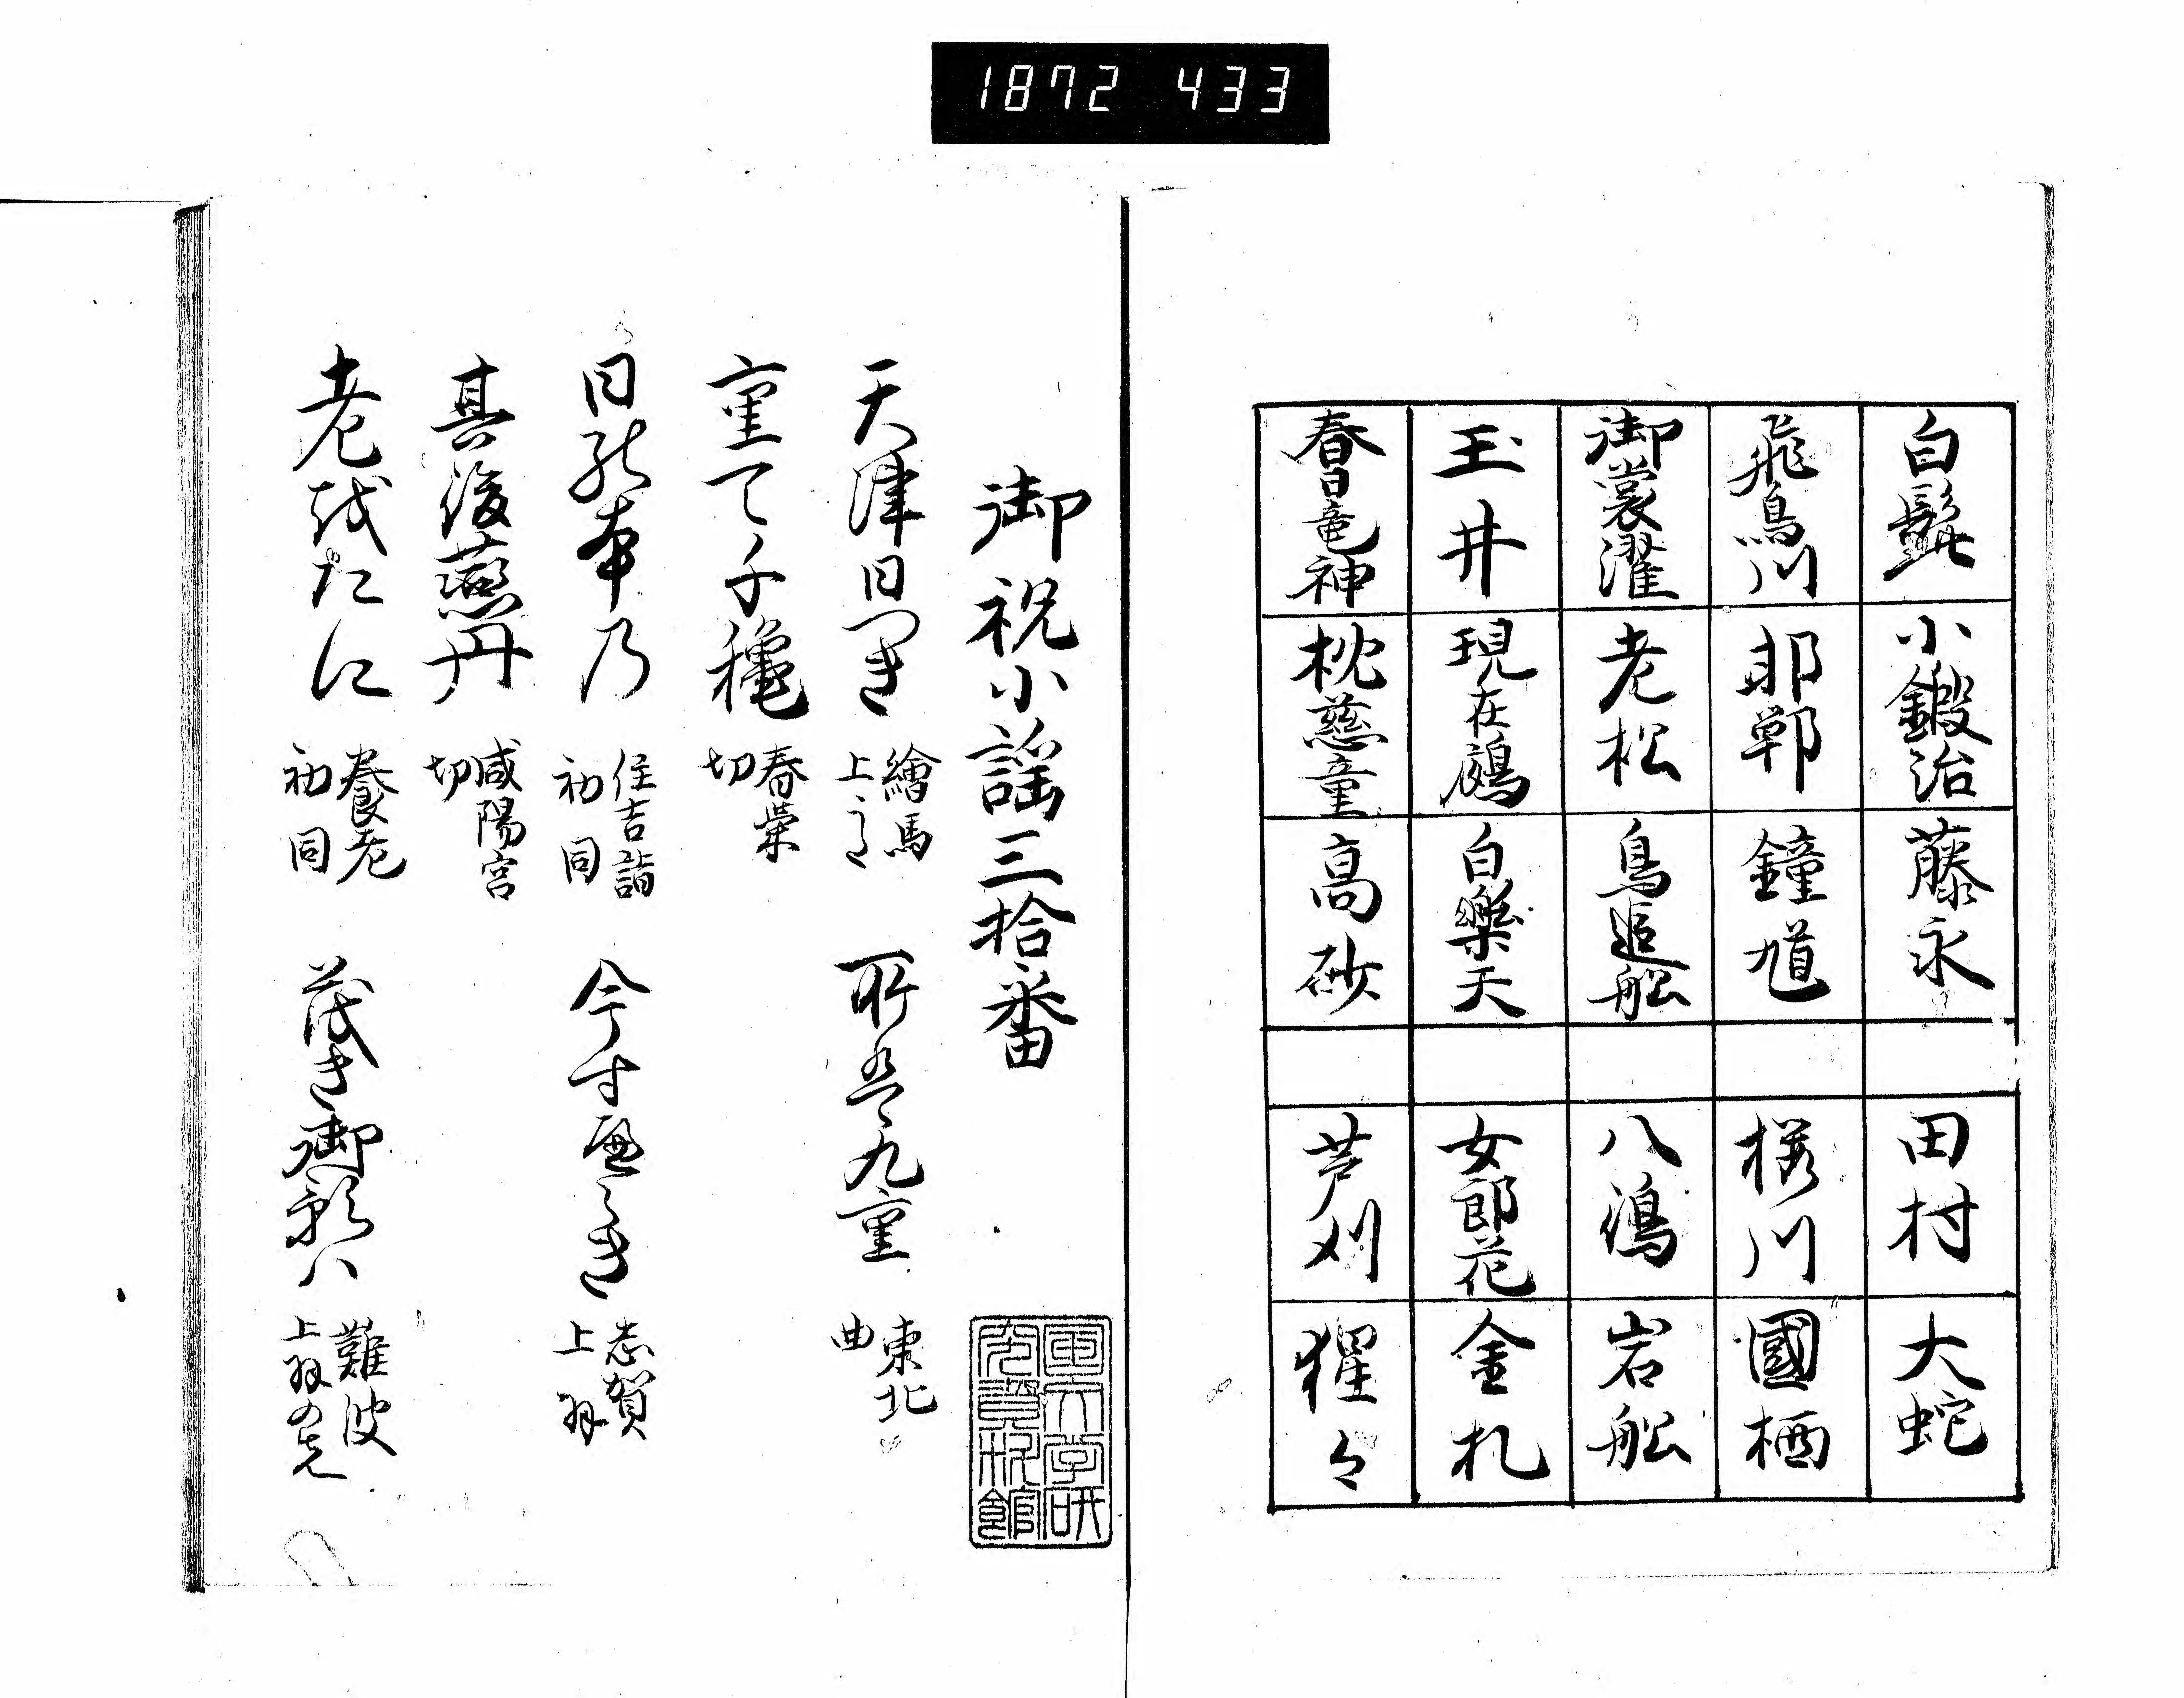 1872 433
白髭 小鍛治 藤永 田村 大蛇
飛鳥川 邯鄲 鐘馗 桜川 國栖
御裳濯 老松 鳥追舩 八嶋 岩舩
玉井 現在鵺 白樂天 女郎花 金札
春日竜神 枕慈童 高砂 芦刈 猩々
御祝小謡三拾番
天津日つき 繪馬 上
所は九重 東北 曲
重て千穐 春榮 切
日能本乃 住吉詣 初同
今寸 き 志賀 上羽
其後燕丹 咸陽宮 切
老越たに 養老 初同
茂き御影ハ 難波 上羽の先
國文学研究資料館